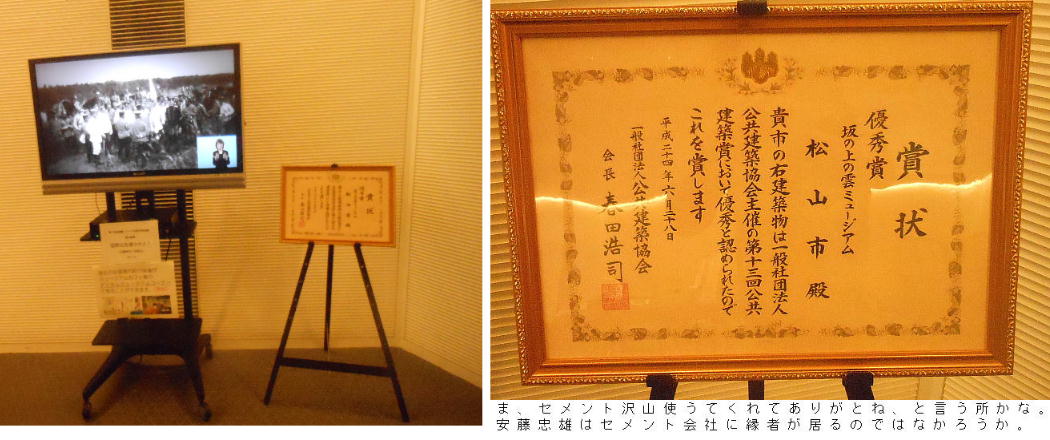 賞状
優秀賞
坂の上の雲ミュージアム
松山市殿
貴市の右建築物は一般社団法人
公共建築協会主催の第十三回公共
建築賞において優秀と認められたので
これを賞します
平成二十四年六月二十八日
一般社団法人公共建築協会
会長 春田浩司
ま、セメント沢山使うてくれてありがとね、と言う所かな。
安藤忠雄はセメント会社に縁者が居るのではなかろうか。